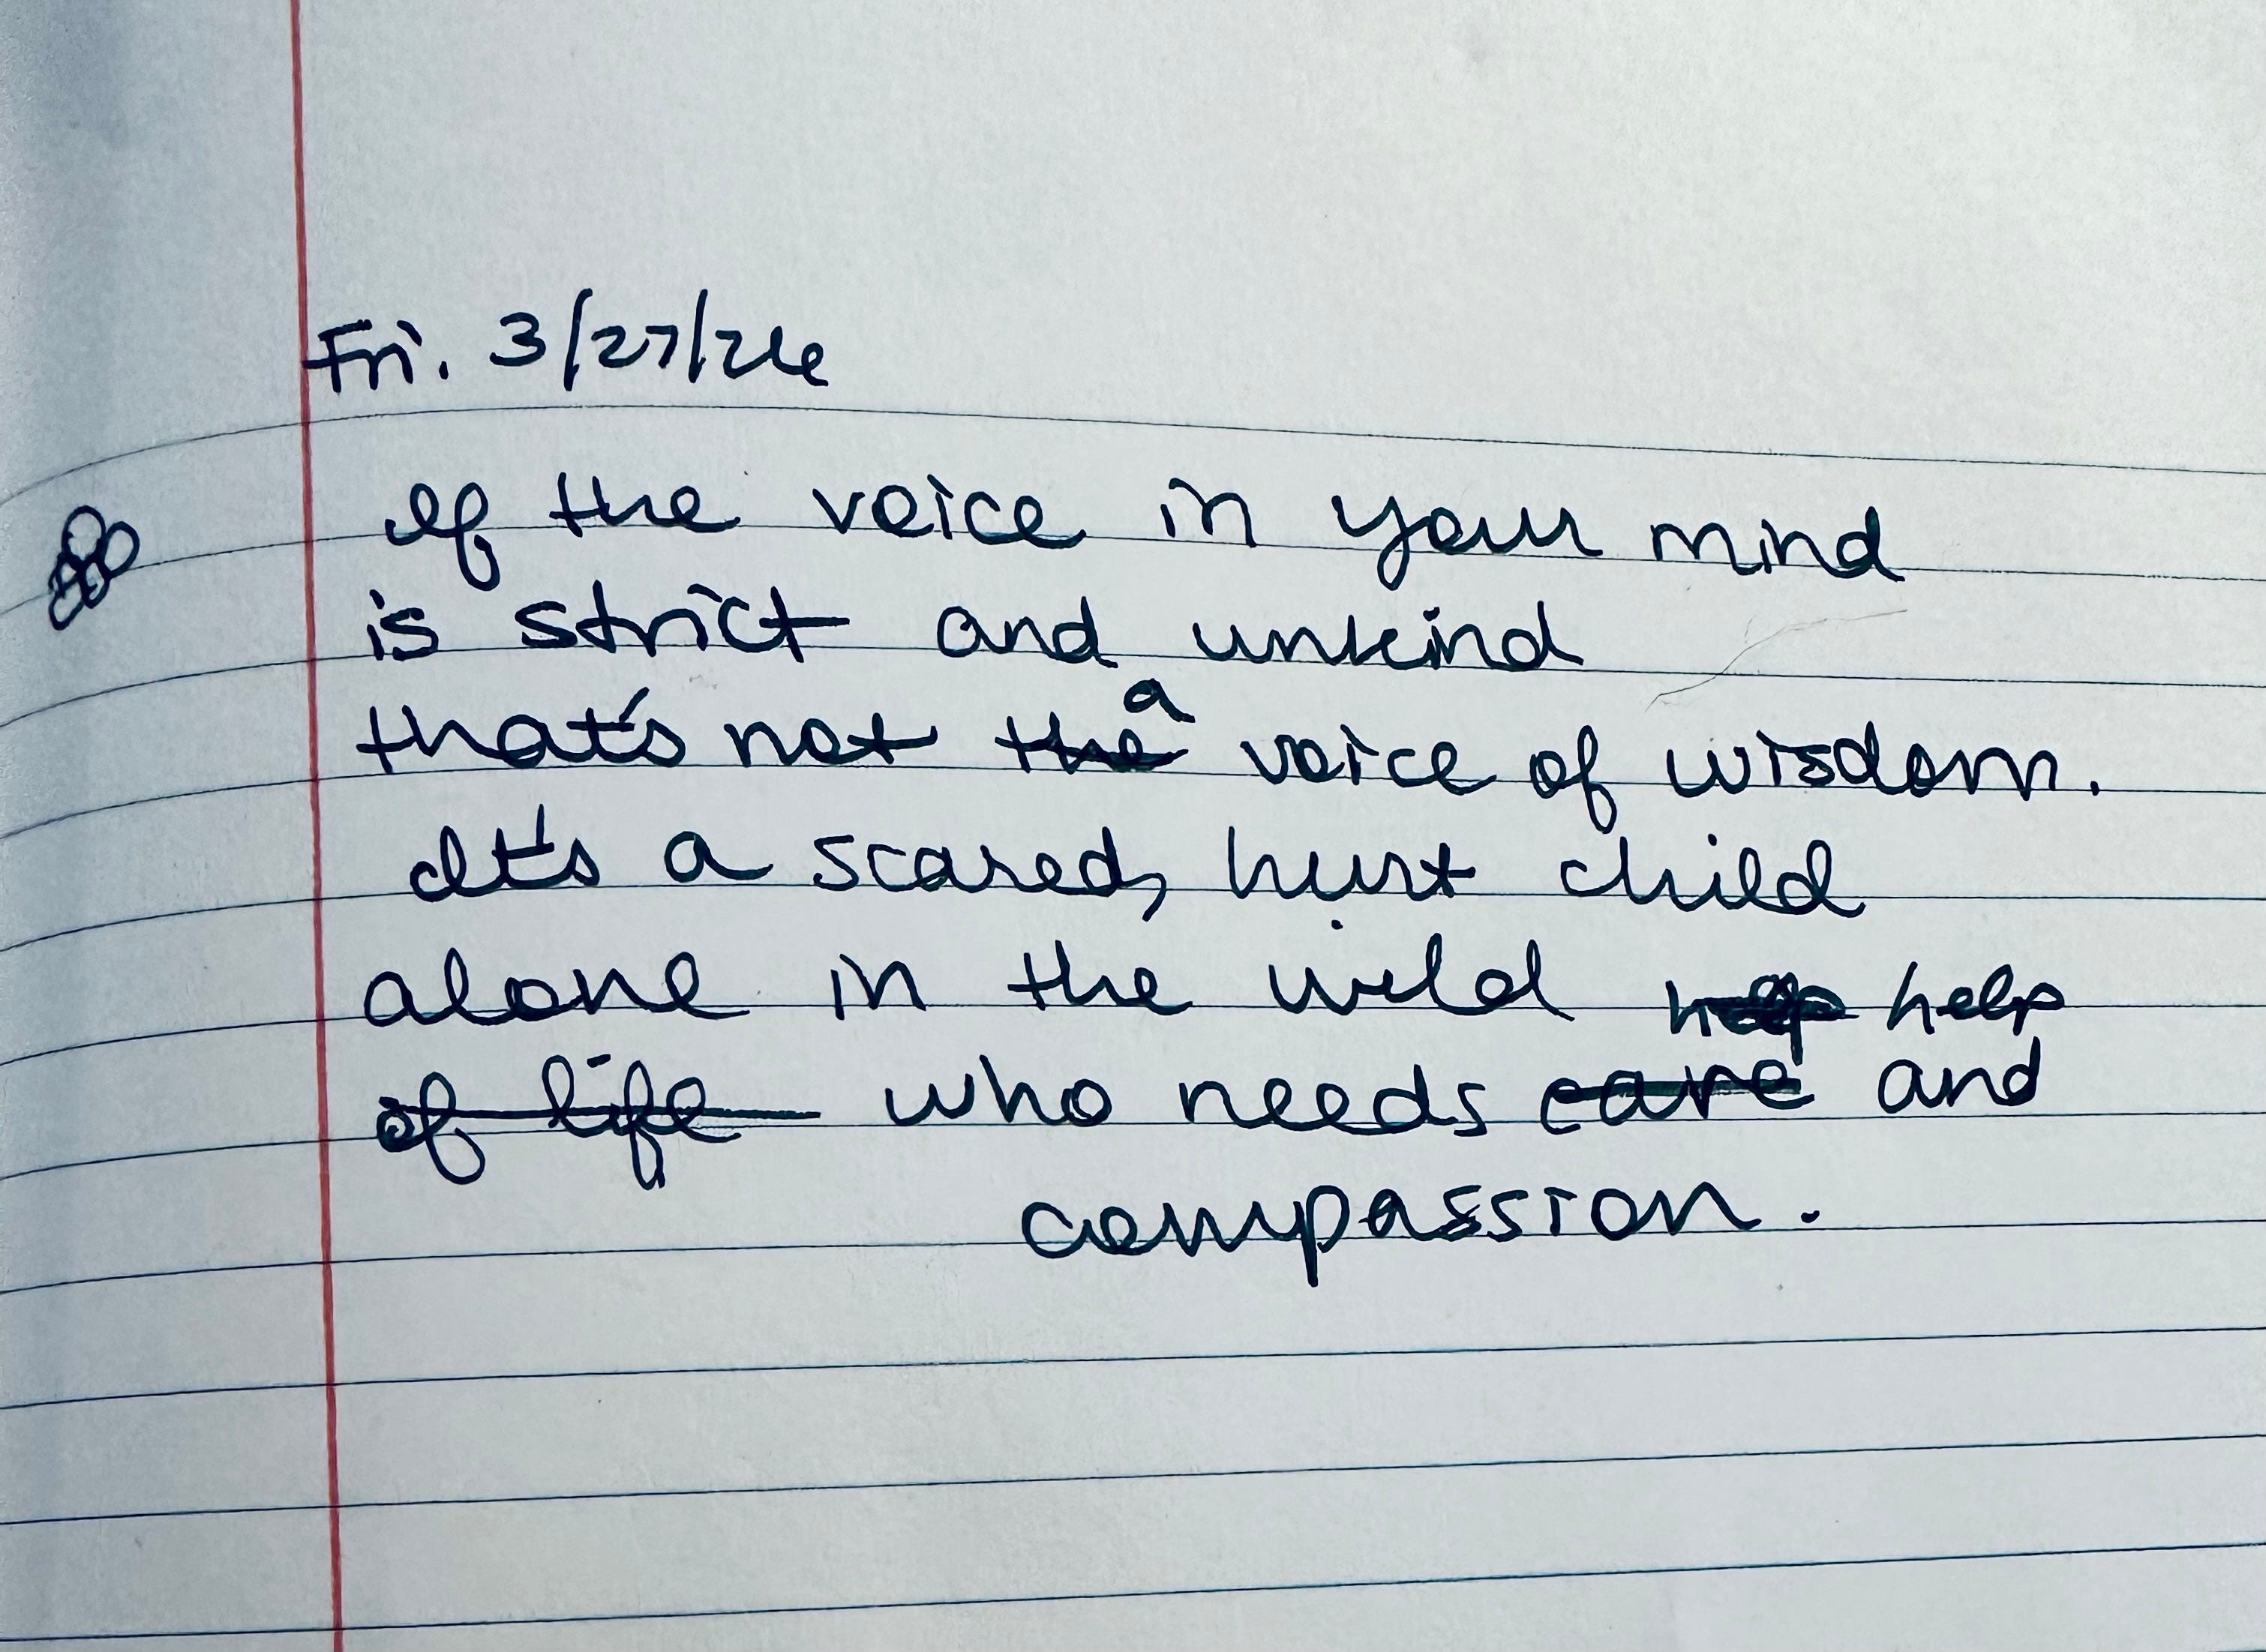 Fri. 3/27/26
If the voice in your mind
is strict and unkind
that's not the a voice of wisdom.
It's a scared, hurt child
alone in the wild help help
of life who needs care and
compassion.